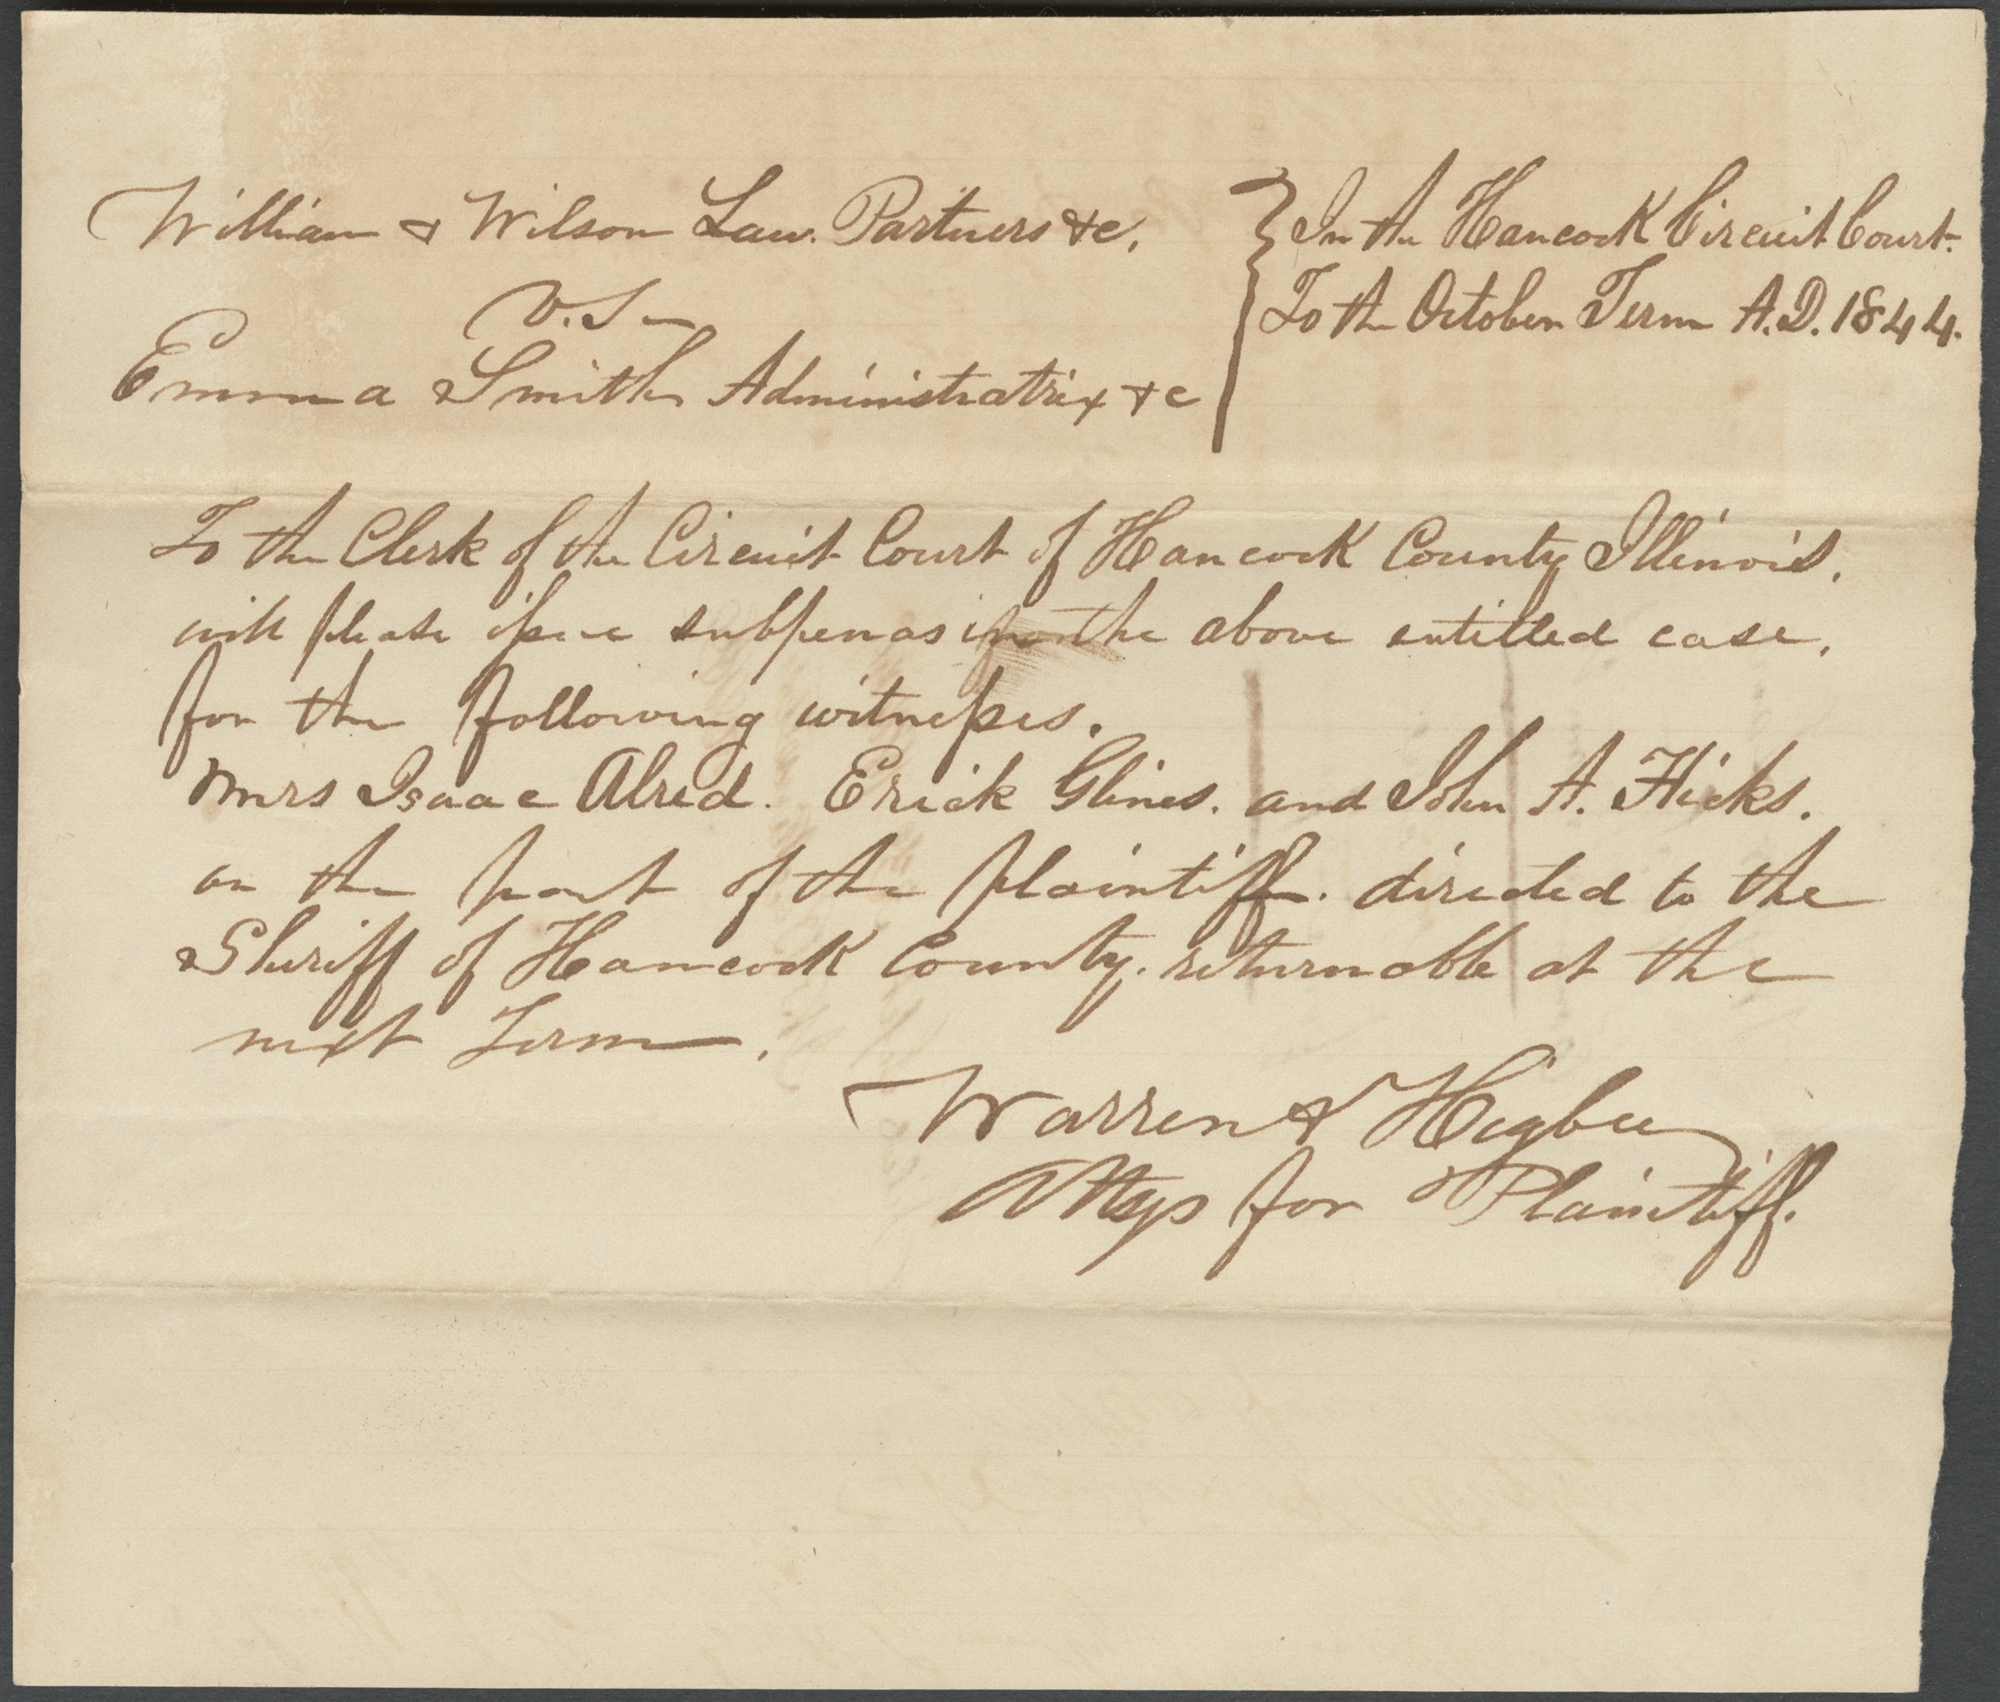 William & Wilson Law. Partners &c.
V.S
Emma Smith Administratrix &c
In the Hancock Circuit Court.
To the October Term A.D. 1844.
To the Clerk of the Circuit Court of Hancock County Illinois.
will please issue subpenas in the above entitled case.
for the following witnesses.
Mrs Isaac Alred. Erick Glines. and John A. Hicks.
on the part of the plaintiff. directed to the
Sheriff of Hancock County. returnable at the
next Term.
Warren & Higbee
Attys for Plaintiff.